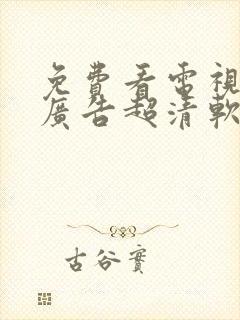 免費看電視
廣告超清軟
古谷實